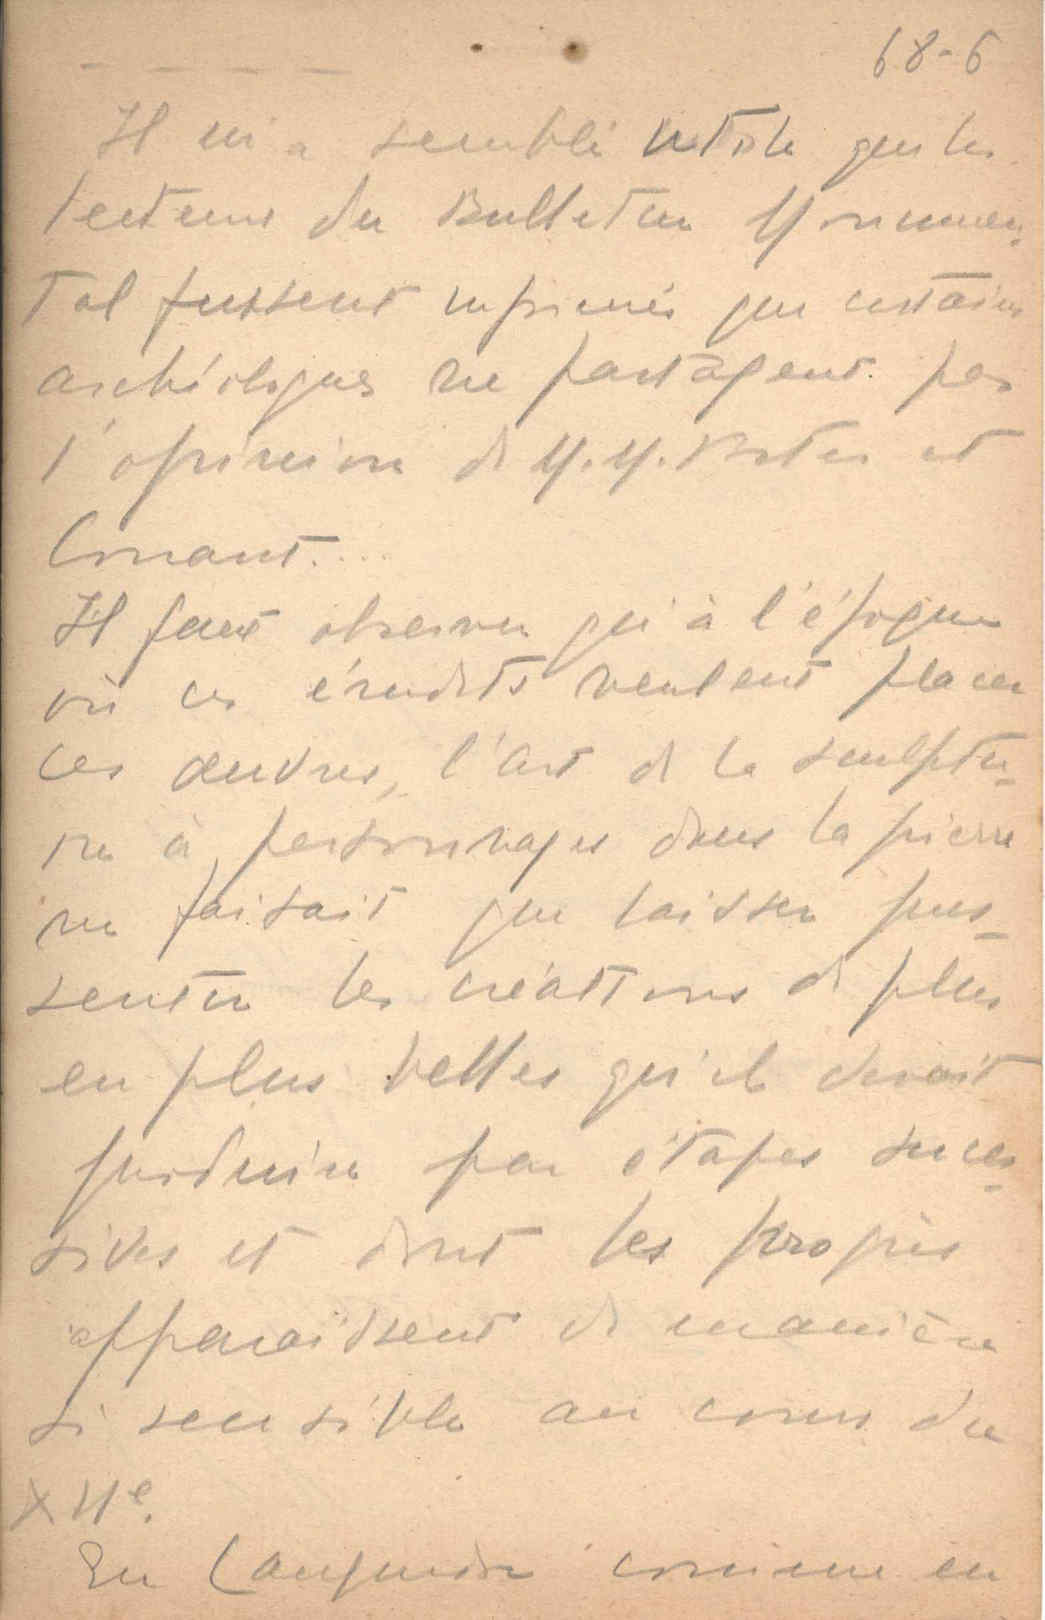 68-6
Il m'a semblé utile que les
lecteurs du Bulletin Monumen-
tal fussent informés que certains
archéologues ne partagent pas
l'opinion de M.M. Porter et
Conant.
Il faut observer qu'à l'époque
où ces érudits veulent placer
ces œuvres, l'art de la sculptu-
re à personnages dans la pierre
ne faisait que laisser pres-
sentir les créations de plus
en plus belles qu'il devait
produire par étapes succes-
sives et dont les progrès
apparaissent de manière
si sensible au cours du
XIIe.
En Languedoc comme en